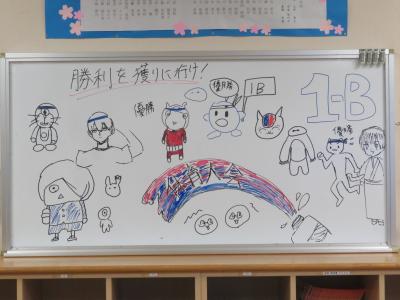 勝利を獲りに行け!
優勝
優勝
1B
1-B
優勝
体育大会